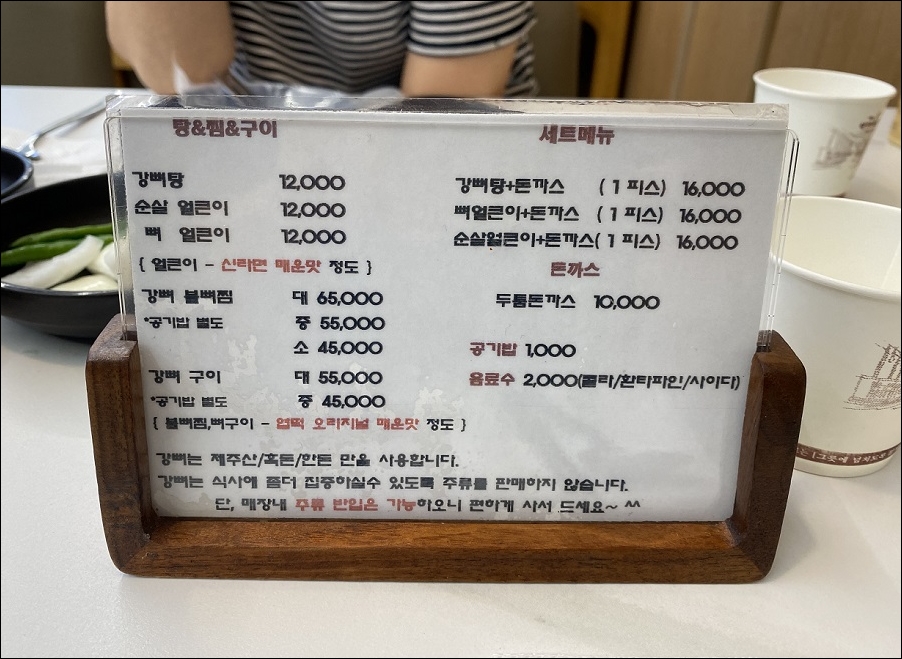 탕&찜&구이
강뼈탕 12,000
순살 얼큰이 12,000
뼈 얼큰이 12,000
{ 얼큰이 - 신라면 매운맛 정도 }
강뼈 불뼈찜 대 65,000
*공기밥 별도 중 55,000
소 45,000
강뼈 구이 대 55,000
*공기밥 별도 중 45,000
{ 불뼈찜,뼈구이 - 엽떡 오리지널 매운맛 정도 }
세트메뉴
강뼈탕+돈까스 ( 1 피스) 16,000
뼈얼큰이+돈까스 ( 1 피스) 16,000
순살얼큰이+돈까스( 1 피스) 16,000
돈까스
두툼돈까스 10,000
공기밥 1,000
음료수 2,000(콜라/환타파인/사이다)
강뼈는 제주산/흑돈/한돈 만을 사용합니다.
강뼈는 식사에 좀더 집중하실수 있도록 주류를 판매하지 않습니다.
단, 매장내 주류 반입은 가능하오니 편하게 사서 드세요~ ^^